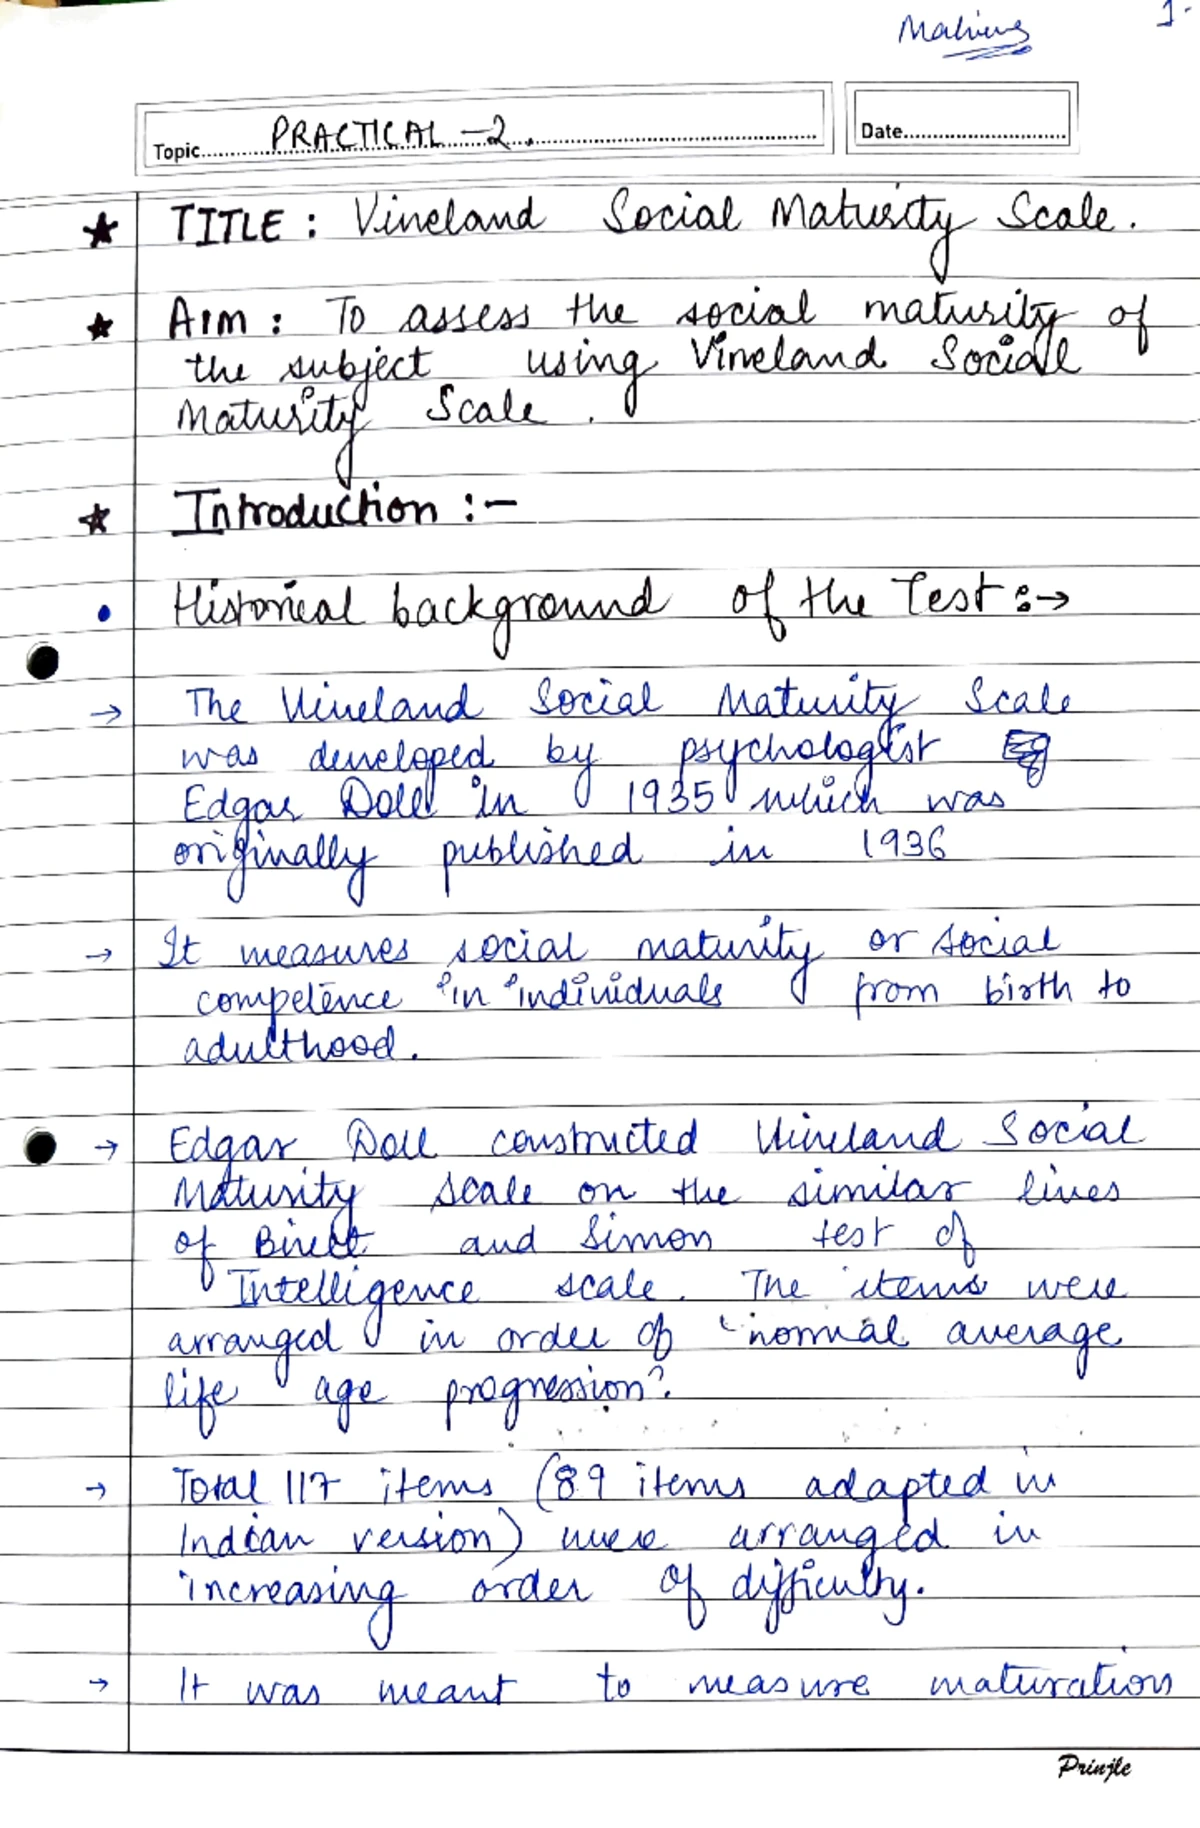 1-
Topic PRACTICAL -2.
Date
★ TITLE : Vineland Social Maturity Scale.
★ AIM : To assess the social maturity of
the subject using Vineland Social
Maturity Scale .
★ Introduction :-
• Historical background of the Test :→
→ The Vineland Social Maturity Scale
was developed by psychologist
Edgar Doll in 1935 which was
originally published in 1936
→ It measures social maturity or social
competence in individuals from birth to
adulthood.
→ Edgar Doll constructed Vineland Social
Maturity Scale on the similar lines
of Binet and Simon test of
Intelligence scale. The items were
arranged in order of 'normal average
life age progression'.
→ Total 117 items (89 items adapted in
Indian version) were arranged in
increasing order of difficulty.
→ It was meant to measure maturation
Prinjle